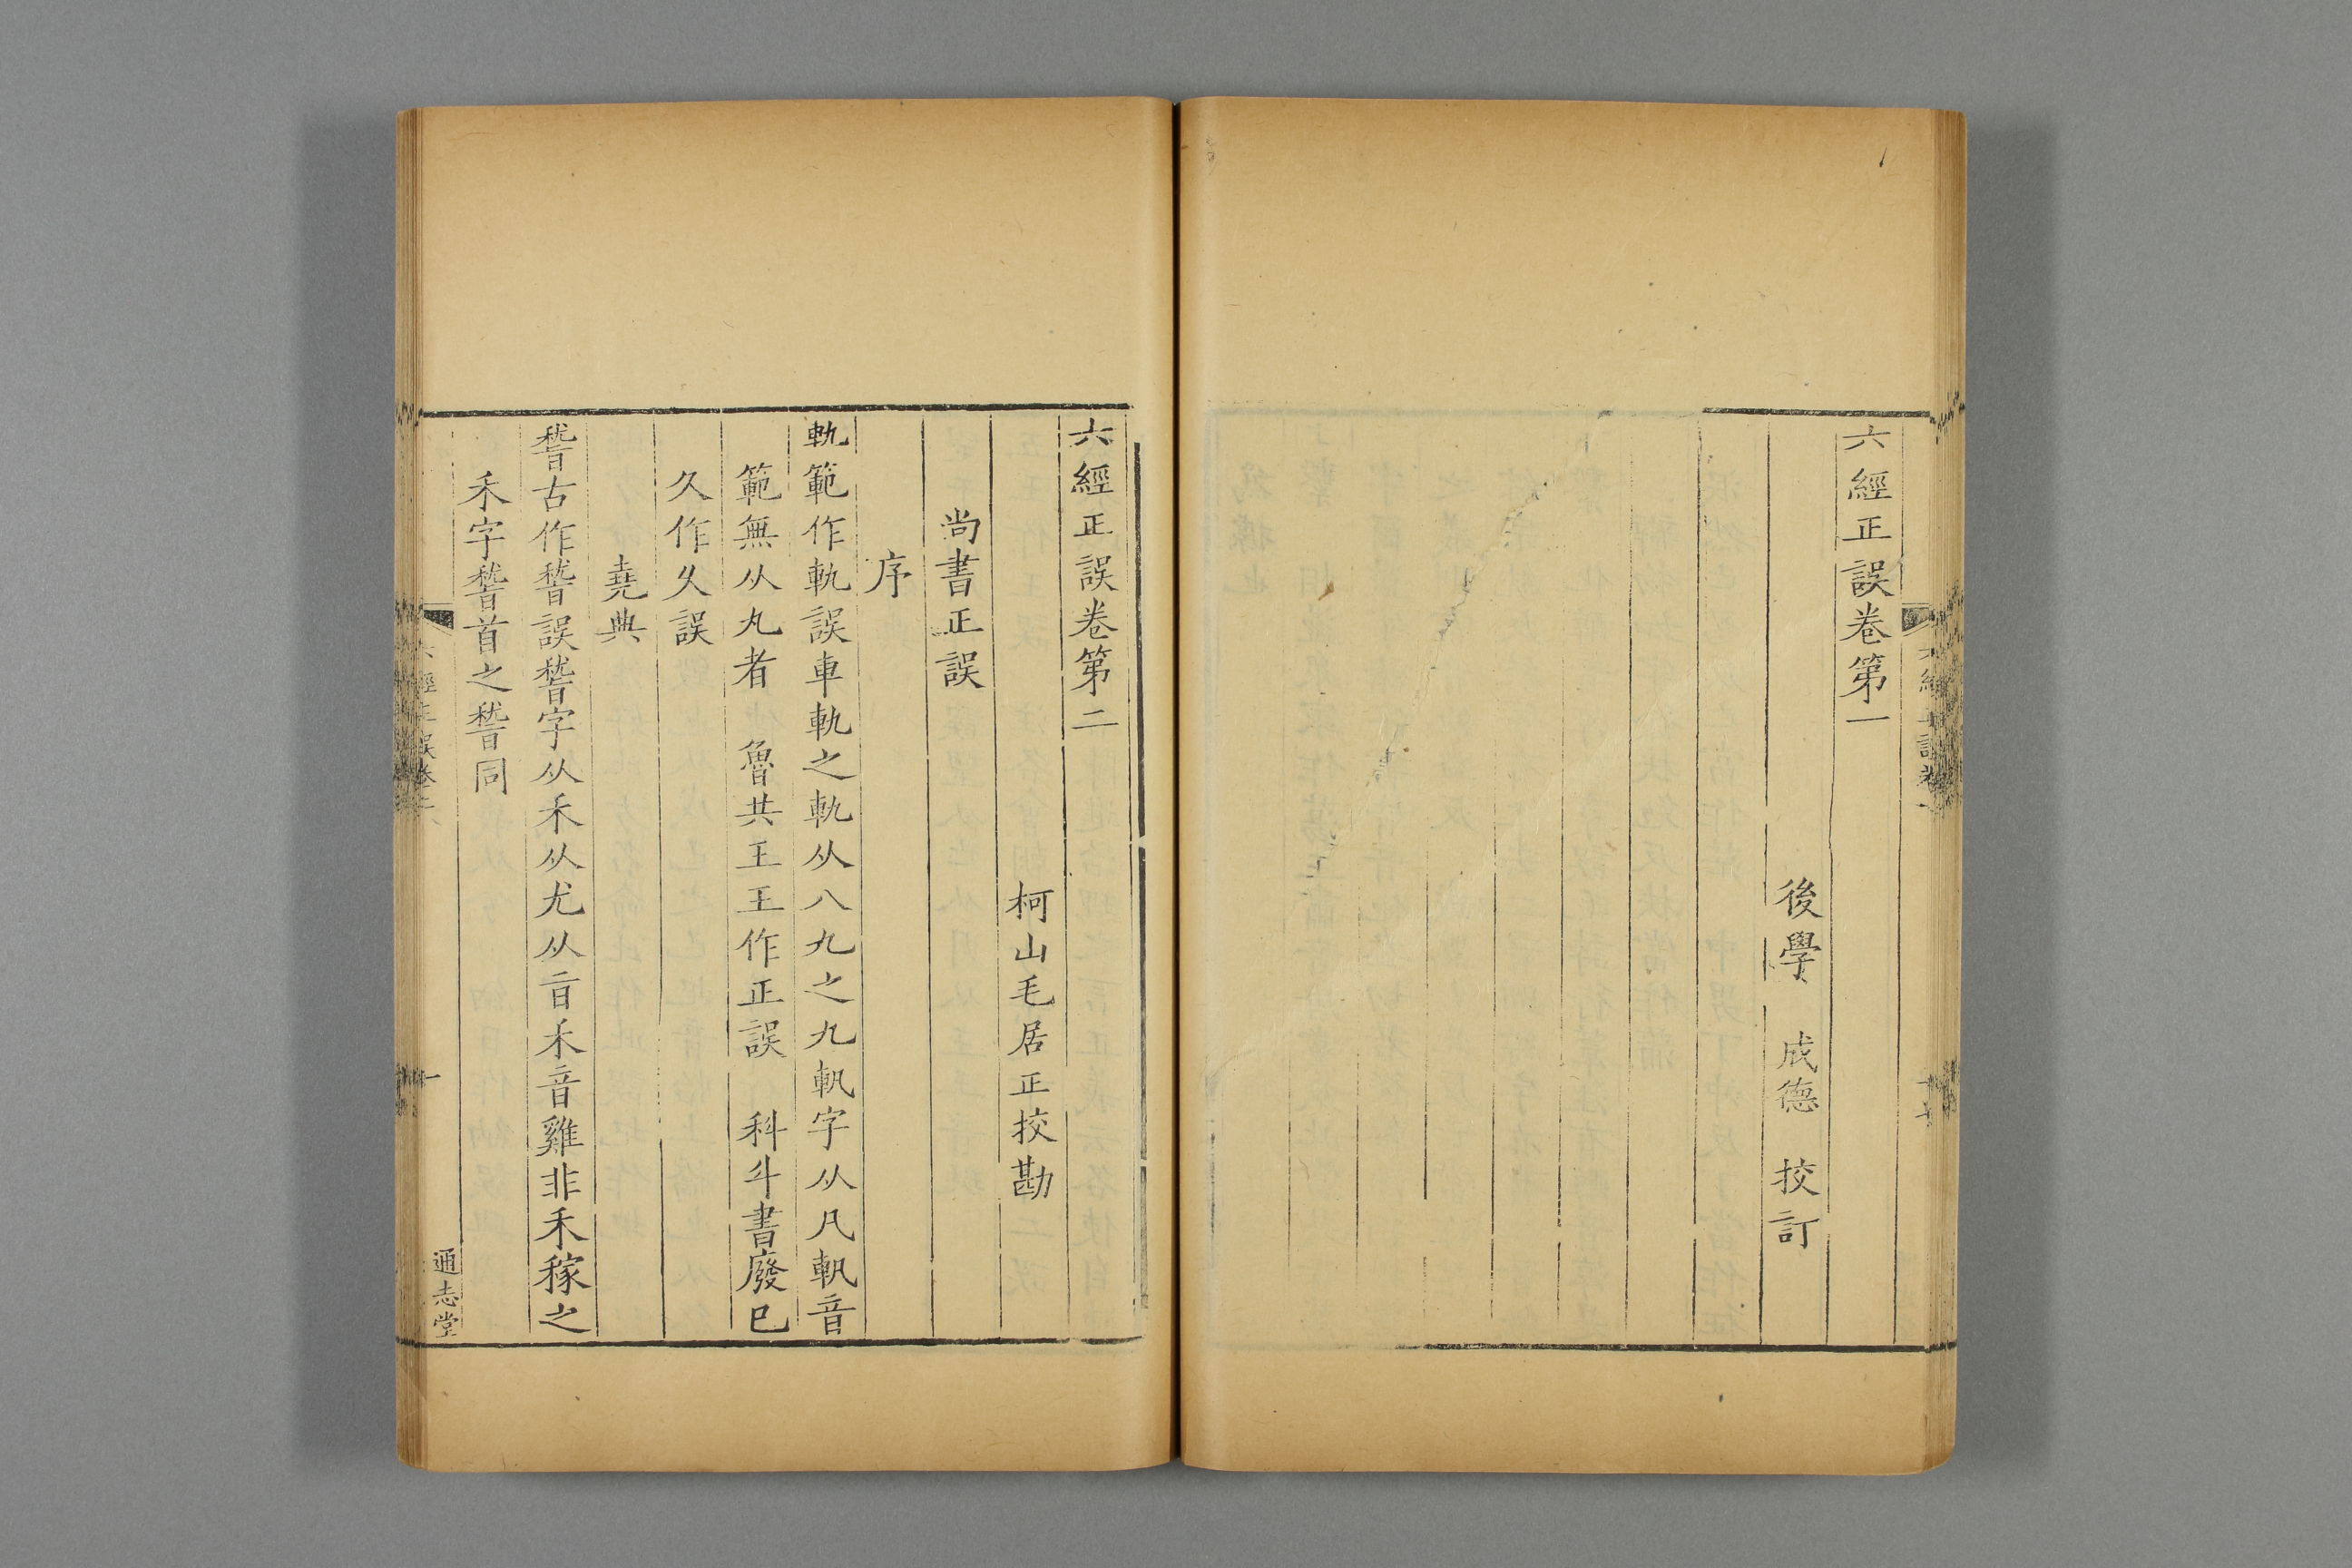 六經正誤卷第一
後學 成德 挍訂
六經正誤卷第二
柯山毛居正挍勘
尚書正誤
序
軌範作軌誤車軌之軌从八九之九軓字从凡軓音
範無从丸者 魯共王王作正誤 科斗書廢巳
久作乆誤
堯典
稽古作䅲誤稽字从禾从尤从旨禾音雞非禾稼之
禾字稽首之稽同
六經正誤卷二
一
通志堂